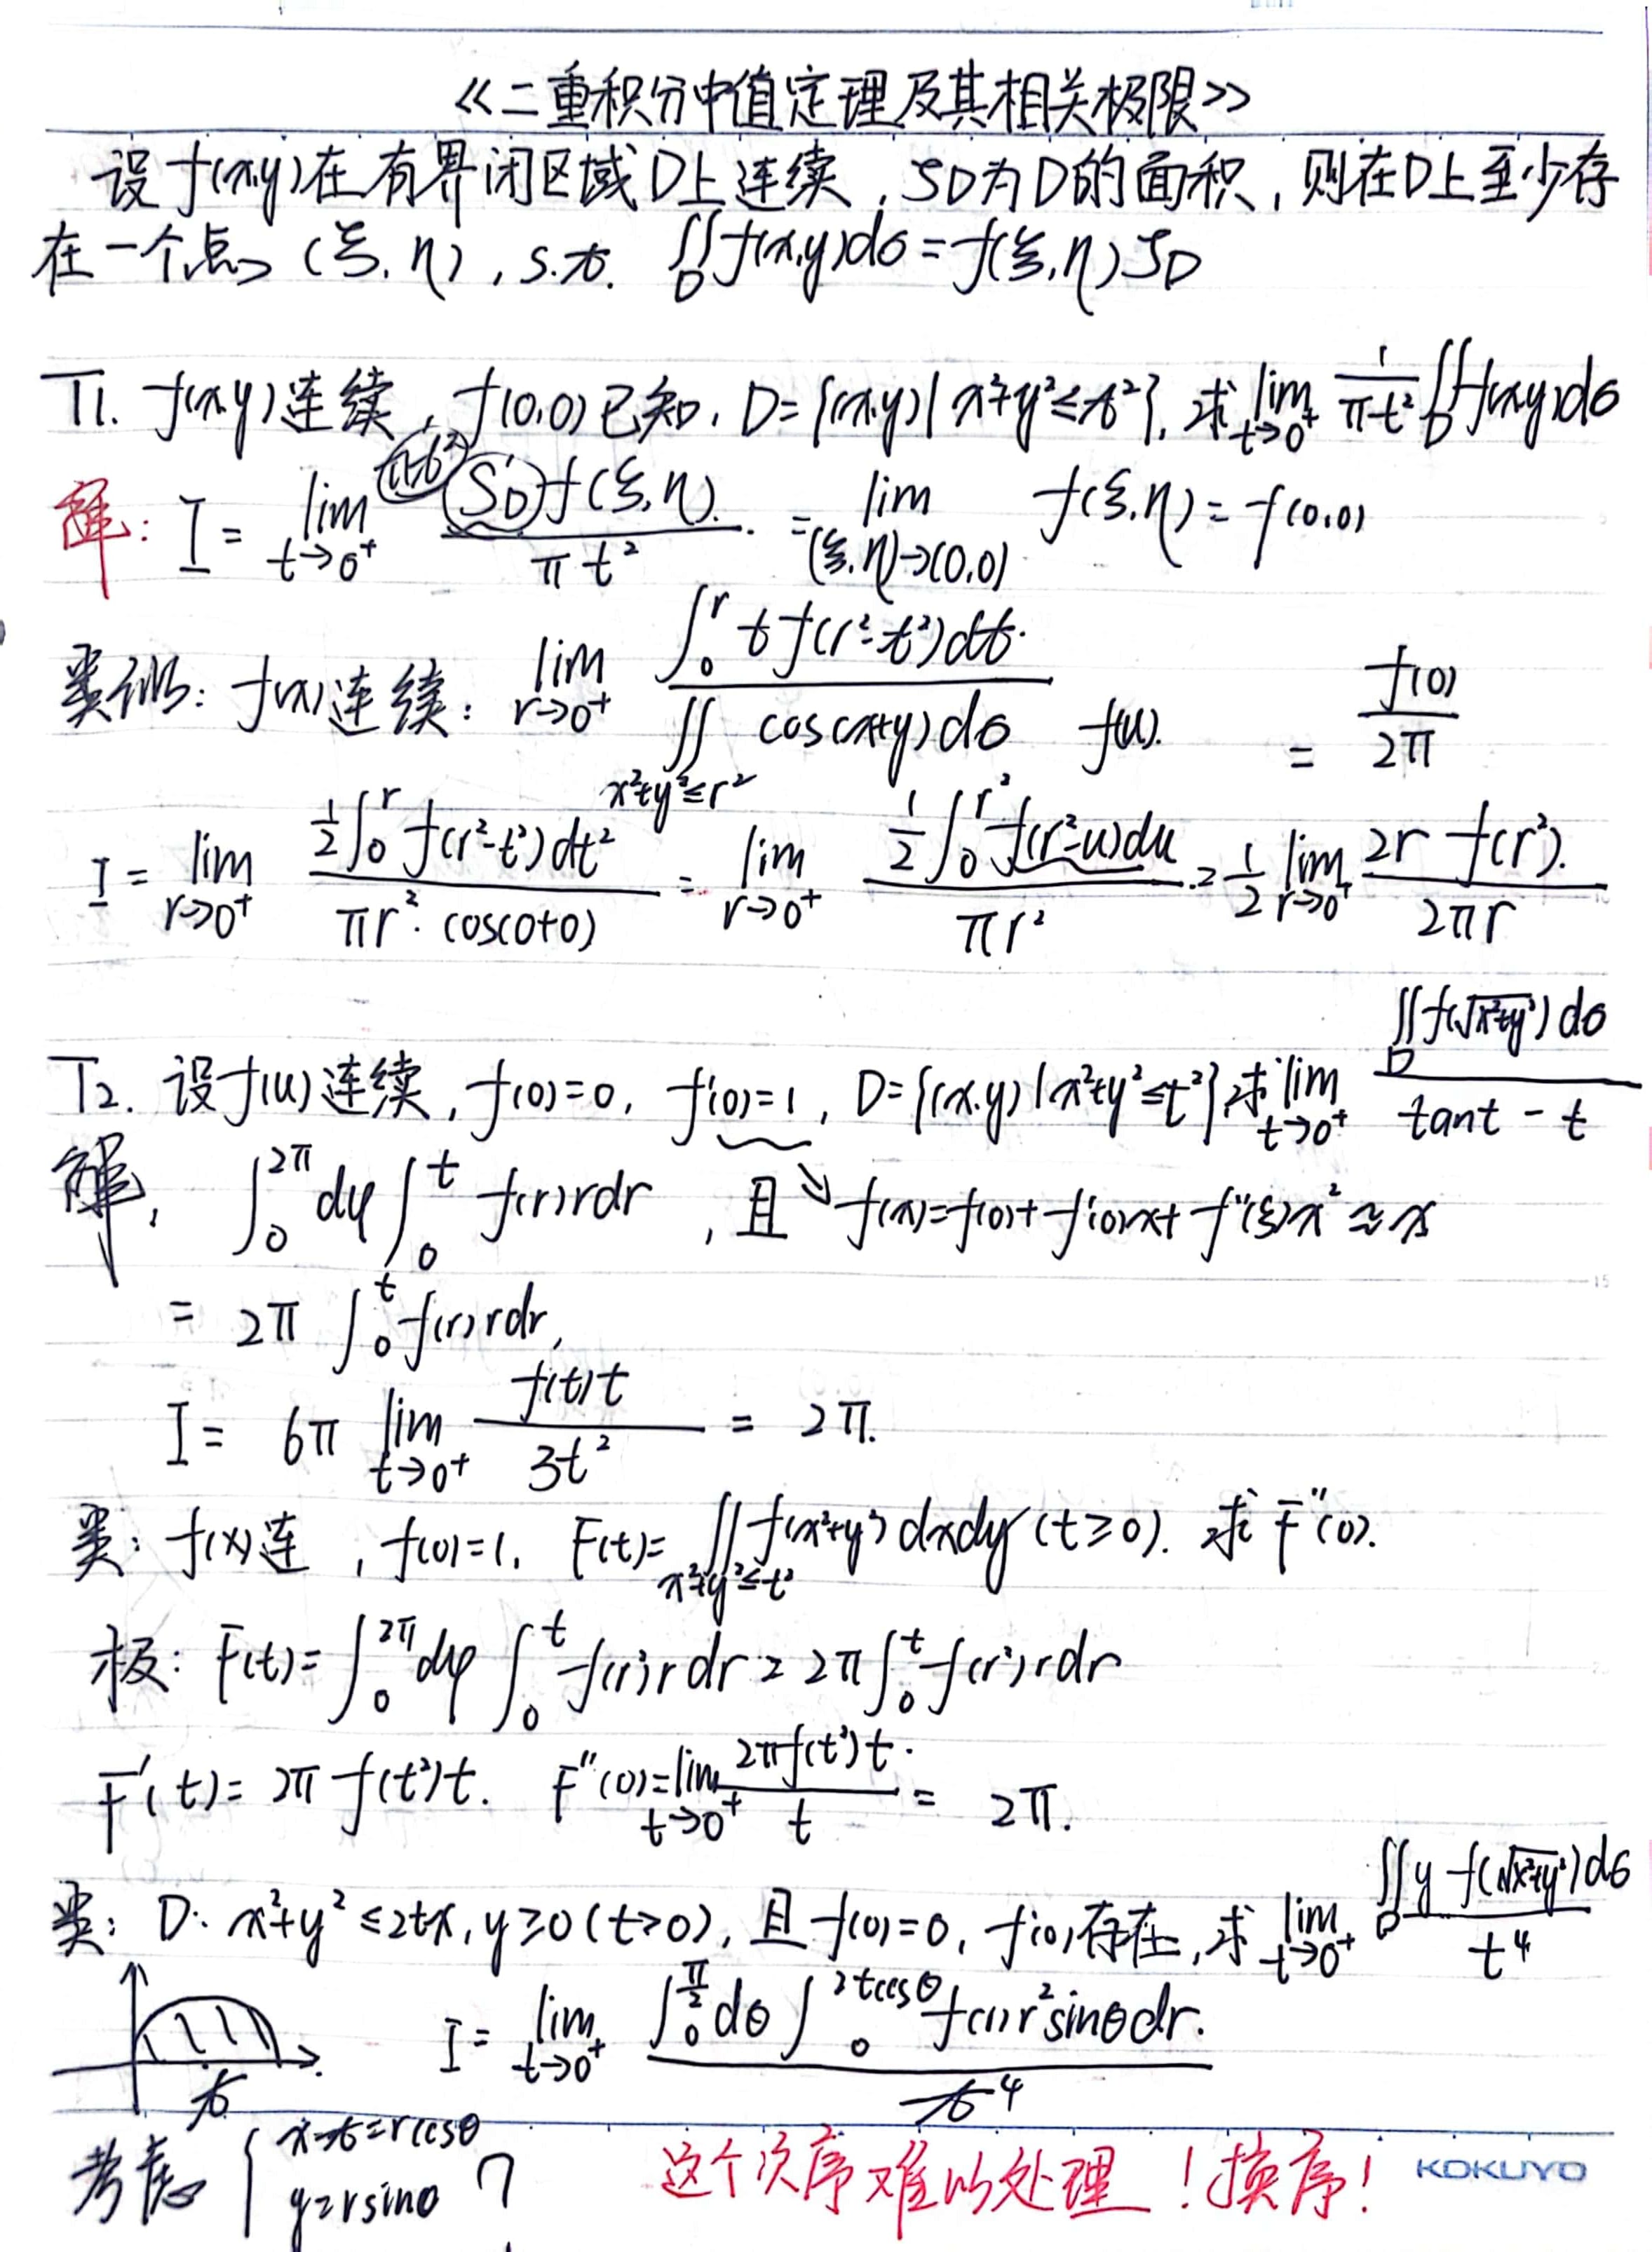 《二重积分中值定理及其相关极限》
设f(x,y)在有界闭区域D上连续,SD为D的面积,则在D上至少存
在一个点(ξ,η),s.t. ∬_D f(x,y)dσ=f(ξ,η)SD
T1. f(x,y)连续,f(0,0)已知,D={(x,y)|x²+y²≤t²},求lim_{t→0⁺} 1/(πt²) ∬_D f(x,y)dσ
解: I = lim_{t→0⁺} (πt²) (S_D)f(ξ,η)/(πt²) = lim_{(ξ,η)→(0,0)} f(ξ,η)=f(0,0)
类训: f(x)连续: lim_{r→0⁺} ∫_0^r t f(r²-t²)dt / ∬_{x²+y²≤r²} cos(x+y)dσ f(u). = f(0)/2π
I = lim_{r→0⁺} ½∫_0^r f(r²-t²)dt² / (πr²·cos(0+0)) = lim_{r→0⁺} ½∫_0^{r²} f(r²-u)du / (πr²) = ½ lim_{r→0⁺} 2r f(r²) / (2πr)
T2. 设f(u)连续,f(0)=0, f'(0)=1, D={(x,y)|x²+y²≤t²},求lim_{t→0⁺} ∬_D f(√(x²+y²))dσ / (tant - t)
解, ∫_0^{2π}dφ∫_0^t f(r)rdr ,且↘f(x)=f(0)+f'(0)x+f''(ξ)x²≈x
= 2π ∫_0^t f(r)rdr,
I = 6π lim_{t→0⁺} f(t)t/(3t²) = 2π.
类: f(x)连,f(0)=1, F(t)=∬_{x²+y²≤t²} f(x²+y²)dxdy(t≥0). 求F''(0).
极: F(t)=∫_0^{2π}dφ∫_0^t f(r²)rdr=2π∫_0^t f(r²)rdr
F'(t)=2πf(t²)t. F''(0)=lim_{t→0⁺} 2πf(t²)t/t = 2π.
类: D: x²+y²≤2tx,y≥0(t>0),且f(0)=0,f'(0)存在,求lim_{t→0⁺} ∬_D y f(√(x²+y²))dσ / t⁴
I = lim_{t→0⁺} ∫_0^{π/2}dθ∫_0^{2tcosθ} f(r)r²sinθdr. / t⁴
t
考虑 { x-t=rcosθ
y=rsinθ ?
这个次序难以处理!换序!
KOKUYO